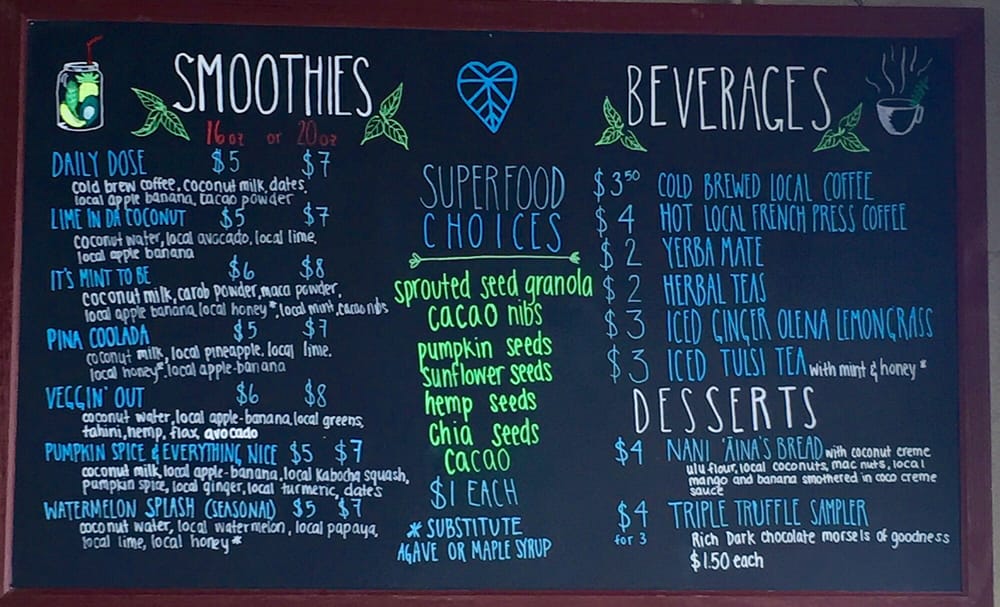 SMOOTHIES
16oz or 20oz
DAILY DOSE $5 $7
cold brew coffee, coconut milk, dates,
local apple banana, cacao powder
LIME IN DA COCONUT $5 $7
coconut water, local avocado, local lime,
local apple banana
IT'S MINT TO BE $6 $8
coconut milk, carob powder, maca powder,
local apple banana, local honey*, local mint, cacao nibs
PINA COOLADA $5 $7
coconut milk, local pineapple, local lime.
local honey*. local apple-banana
VEGGIN' OUT $6 $8
coconut water, local apple-banana, local greens,
tahini, hemp, flax, avocado
PUMPKIN SPICE & EVERYTHING NICE $5 $7
coconut milk, local apple-banana, local Kabocha squash,
pumpkin spice, local ginger, local turmeric, dates
WATERMELON SPLASH (SEASONAL) $5 $7
coconut water, local watermelon, local papaya,
local lime, local honey*
SUPERFOOD
CHOICES
sprouted seed granola
cacao nibs
pumpkin seeds
sunflower seeds
hemp seeds
chia seeds
cacao
$1 EACH
* SUBSTITUTE
AGAVE OR MAPLE SYRUP
BEVERAGES
$3.50 COLD BREWED LOCAL COFFEE
$4 HOT LOCAL FRENCH PRESS COFFEE
$2 YERBA MATE
$2 HERBAL TEAS
$3 ICED GINGER OLENA LEMONGRASS
$3 ICED TULSI TEA with mint & honey *
DESSERTS
$4 NANI 'ĀINA'S BREAD with coconut creme
ulu flour, local coconuts, mac nuts, local
mango and banana smothered in coco creme
sauce
$4 TRIPLE TRUFFLE SAMPLER
for 3 Rich Dark chocolate morsels of goodness
$1.50 each